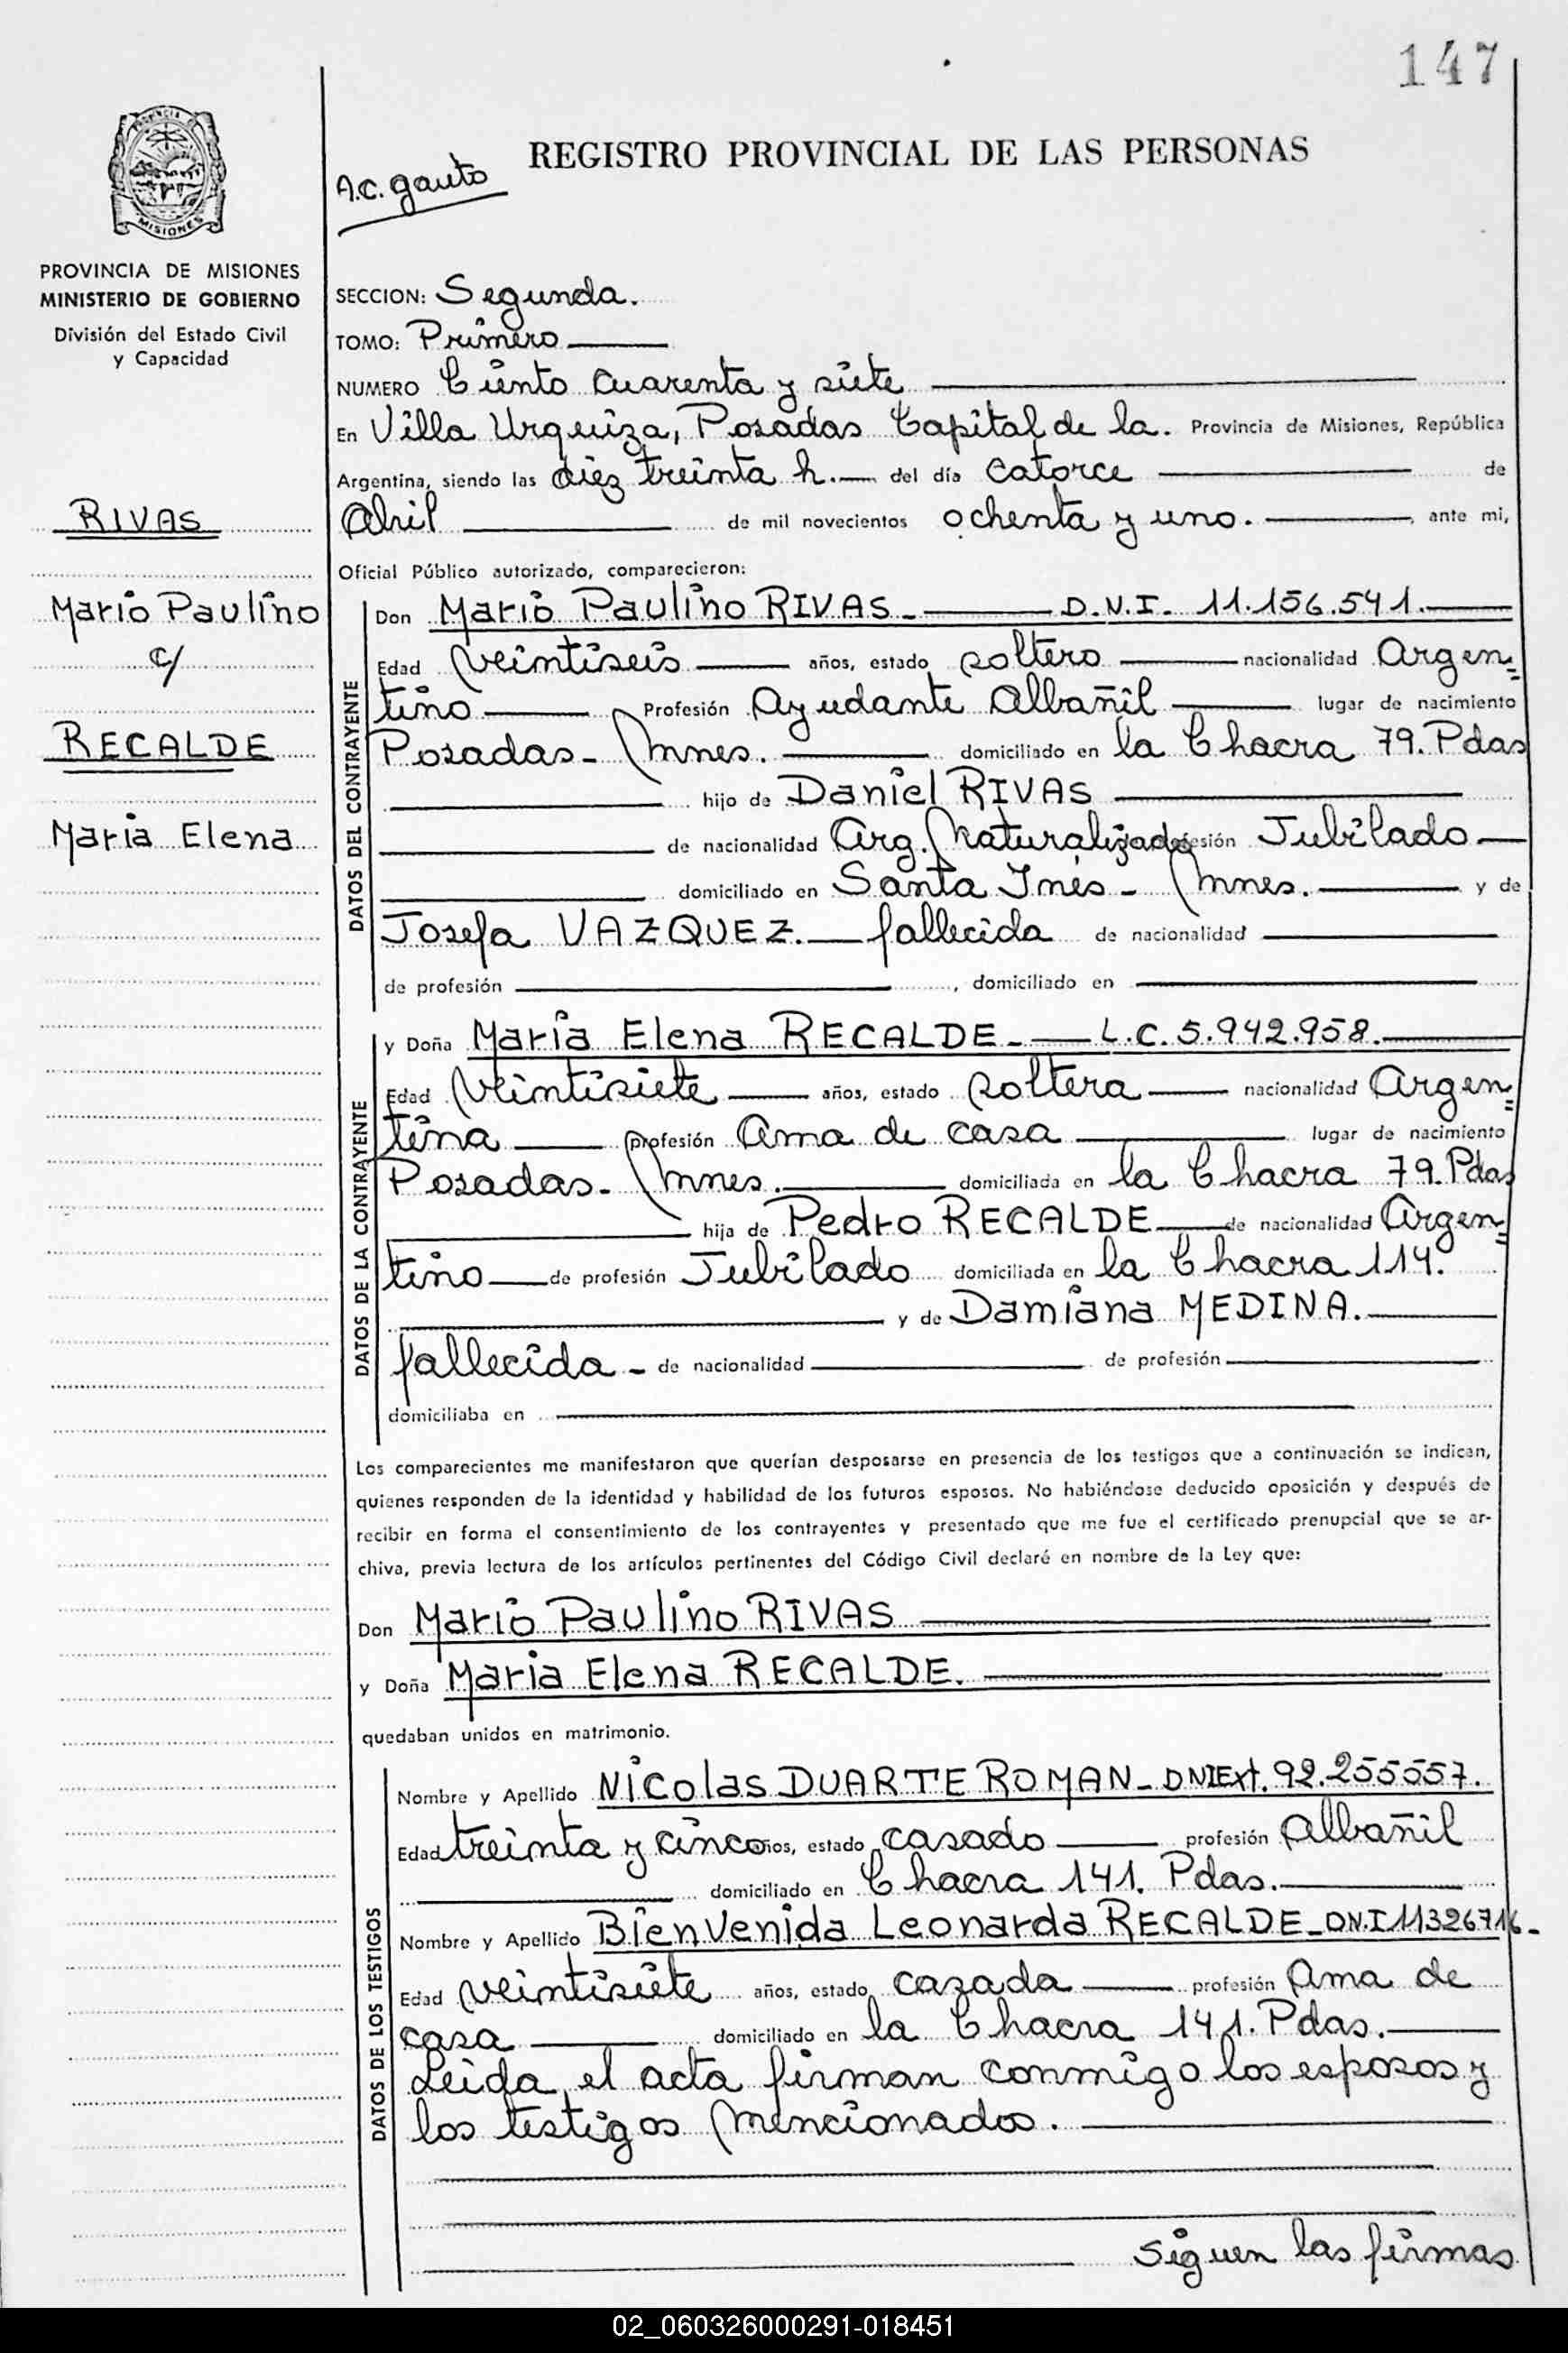 147
REGISTRO PROVINCIAL DE LAS PERSONAS
A.C. Gauto
PROVINCIA
MISIONES
PROVINCIA DE MISIONES
MINISTERIO DE GOBIERNO
División del Estado Civil
y Capacidad
RIVAS
Mario Paulino
c/
RECALDE
Maria Elena
SECCION: Segunda.
TOMO: Primero
NUMERO Ciento cuarenta y siete
En Villa Urquiza, Posadas Capital de la. Provincia de Misiones, República
Argentina, siendo las diez treinta h. del día catorce de
Abril de mil novecientos ochenta y uno. ante mi,
Oficial Público autorizado, comparecieron:
DATOS DEL CONTRAYENTE
Don Mario Paulino RIVAS - D.N.I. 11.156.541.
Edad veintiseis años, estado soltero nacionalidad Argen=
tino Profesión Ayudante Albañil lugar de nacimiento
Posadas - Mnes. domiciliado en la Chacra 79. Pdas
hijo de Daniel RIVAS
de nacionalidad Arg. Naturalizado profesión Jubilado
domiciliado en Santa Inés - Mnes. y de
Josefa VAZQUEZ. fallecida de nacionalidad
de profesión , domiciliado en
DATOS DE LA CONTRAYENTE
y Doña María Elena RECALDE - L.C. 5.942.958.
Edad veintisiete años, estado soltera nacionalidad Argen=
tina profesión Ama de casa lugar de nacimiento
Posadas - Mnes. domiciliada en la Chacra 79. Pdas
hija de Pedro RECALDE de nacionalidad Argen=
tino de profesión Jubilado domiciliada en la Chacra 114.
y de Damiana MEDINA.
fallecida - de nacionalidad de profesión
domiciliaba en
Los comparecientes me manifestaron que querían desposarse en presencia de los testigos que a continuación se indican,
quienes responden de la identidad y habilidad de los futuros esposos. No habiéndose deducido oposición y después de
recibir en forma el consentimiento de los contrayentes y presentado que me fue el certificado prenupcial que se ar-
chiva, previa lectura de los artículos pertinentes del Código Civil declaré en nombre de la Ley que:
Don Mario Paulino RIVAS
y Doña Maria Elena RECALDE.
quedaban unidos en matrimonio.
DATOS DE LOS TESTIGOS
Nombre y Apellido Nicolas DUARTE ROMAN - DNIExt. 92.255557.
Edad treinta y cinco años, estado casado profesión Albañil
domiciliado en Chacra 141. Pdas.
Nombre y Apellido Bienvenida Leonarda RECALDE - D.N.I 11326716 -
Edad veintisiete años, estado cazada profesión Ama de
casa domiciliado en la Chacra 141. Pdas.
Leida el acta firman conmigo los esposos y
los testigos mencionados.
Siguen las firmas
02_060326000291-018451